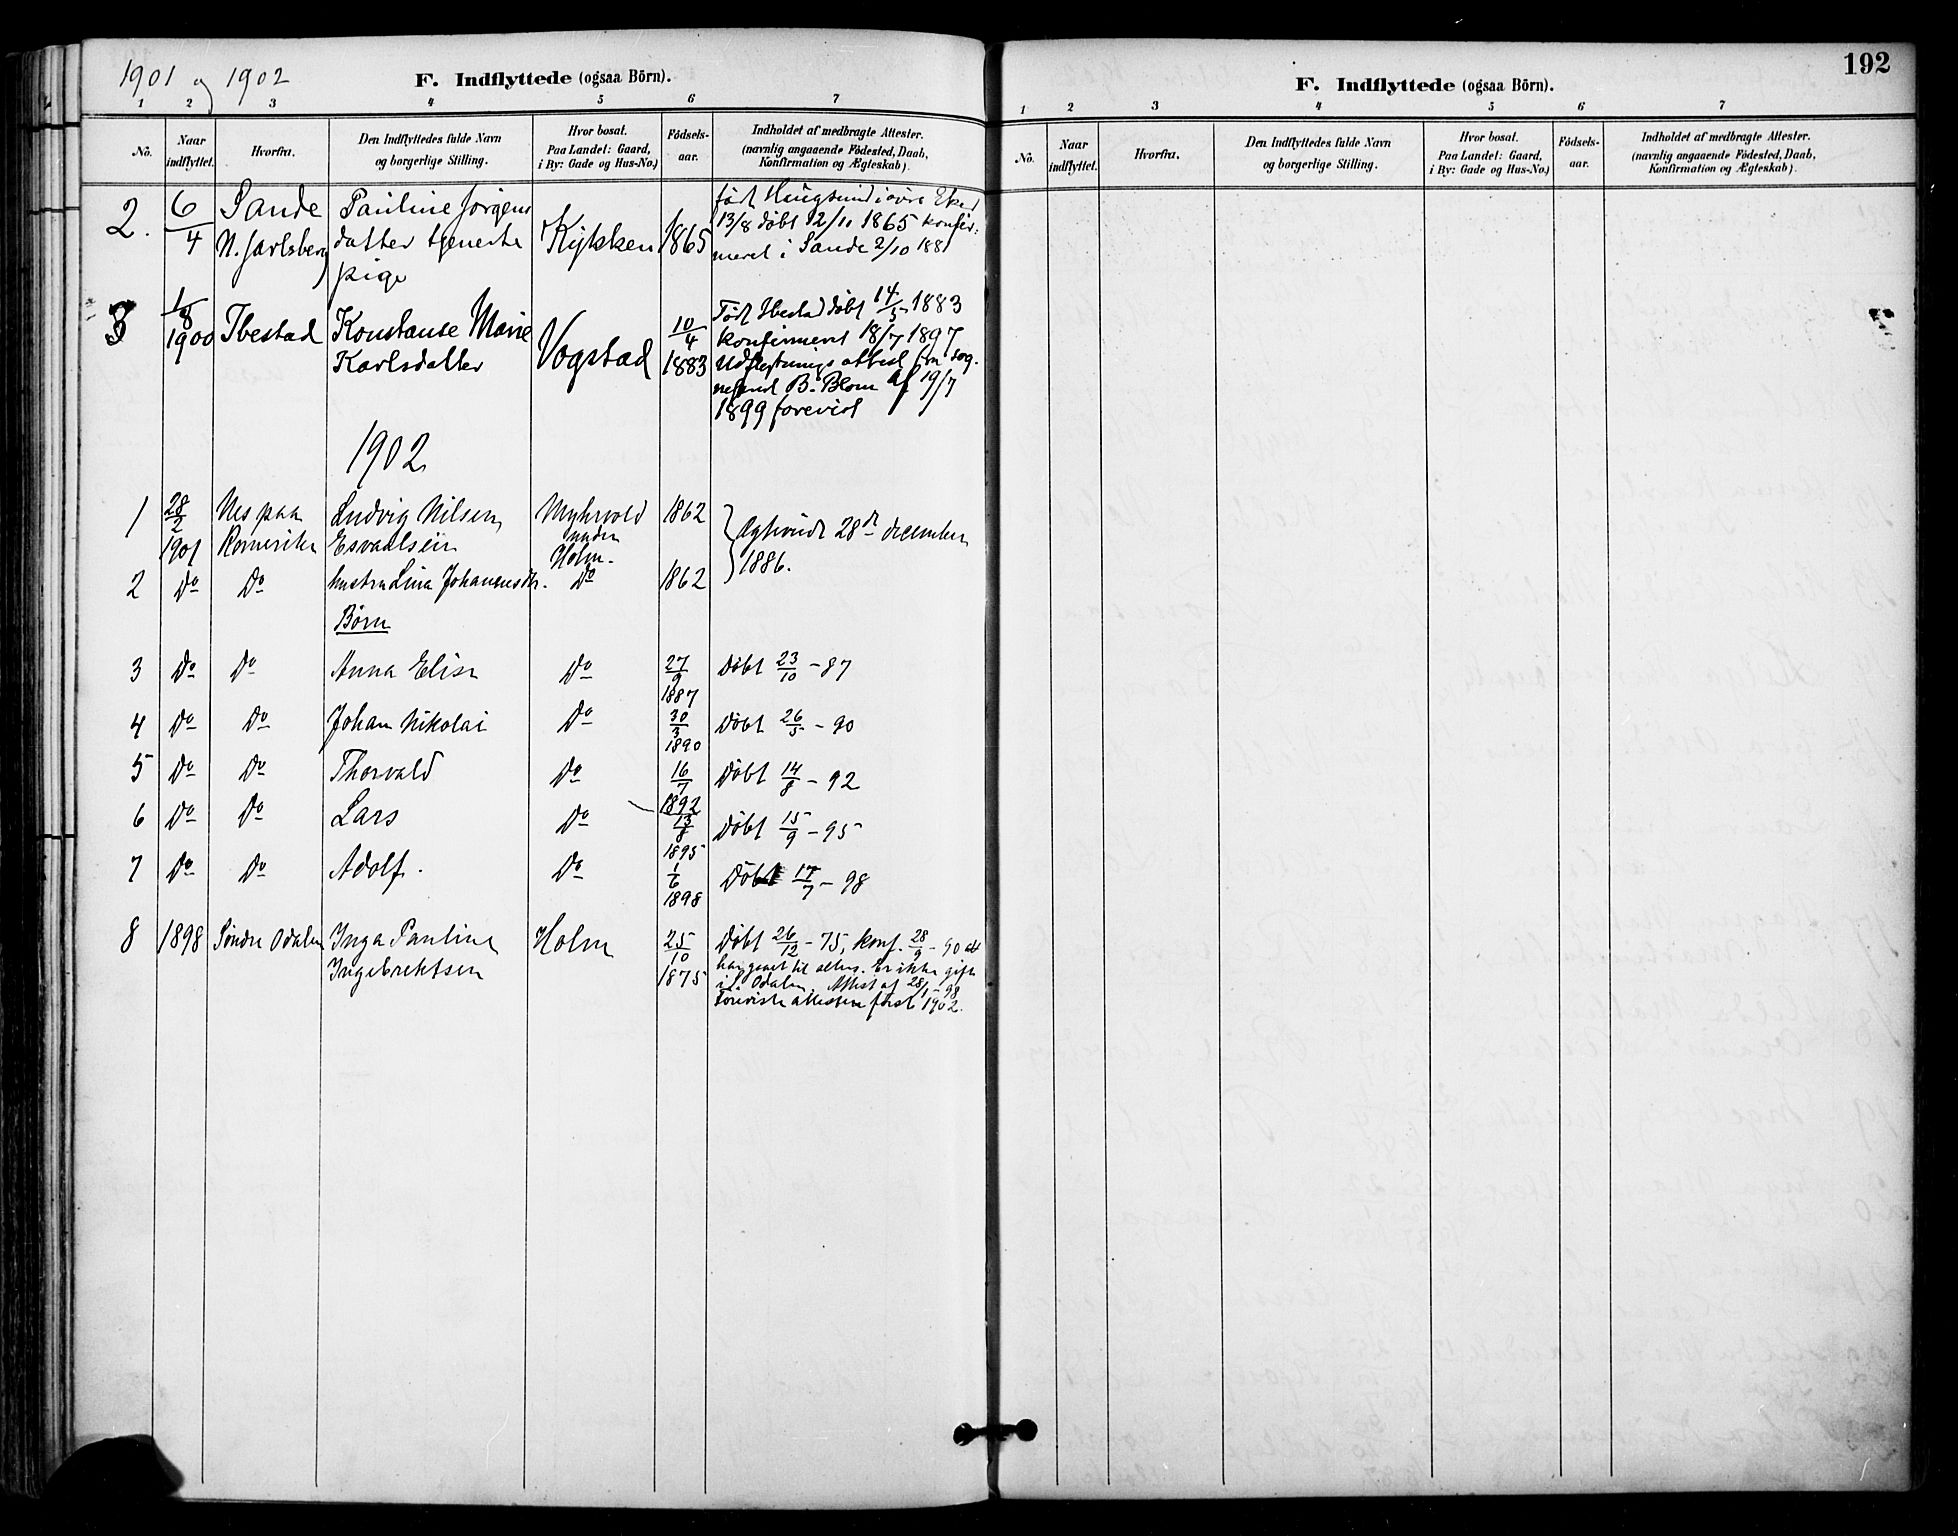 1901 og 1902
F. Indflyttede (ogsaa Börn).
1 2 3 4 5 6 7
No.
Naar indflyttet.
Hvorfra.
Den Indflyttedes fulde Navn og borgerlige Stilling.
Hvor bosat. Paa Landet: Gaard, i By: Gade og Hus-No.)
Födsels-aar.
Indholdet af medbragte Attester. (navnlig angaaende Födested, Daab, Konfirmation og Ægteskab).
2. 6/4 Sande Pauline Jörgens Kykken 1865 født Haugsund i øvre Eker
N. Jarlsberg datter tjeneste 13/8 døbt 12/11 1865 konfir:
pige meret i Sande 2/10 1881
3 1/8 1900 Ibestad Konstanse Marie Vogstad 10/4 1883 Født Ibestad døbt 14/5 1883
Karlsdatter konfirmeret 18/7 1897
Udflytnings attest fra sog-
neprest B. Blom af 19/7
1899 forevist
1902
1 28/2 1901 Nes paa Ludvig Nilsen Myhrvold 1862
Romerike Esvaldsen under
Holm. Ægteviet 28de december
1886.
2 Do Do hustru Lina Johannesdtr. Do 1862
Börn
3 Do Do Anna Elise Do 27/9 1887 Döbt 23/10 - 87
4 Do Do Johan Nikolai Do 30/3 1890 Döbt 26/5 - 90
5 Do Do Thorvald Do 16/7 1892 Döbt 14/8 - 92
6 Do Do Lars Do 13/8 1895 Döbt 15/9 - 95
7 Do Do Adolf. Do 1/6 1898 Döbt 17/7 - 98
8 1898 Söndre Odalen Inga Pauline Holm 25/10 1875 Döbt 26/12 - 75, konf. 28/9 - 90
Ingebrektsen har gaaet til alters. Er ikke gift
i S. Odalen. Attest af 28/1 - 98
Foreviste attesten först 1902.
192
F. Indflyttede (ogsaa Börn).
1 2 3 4 5 6 7
No.
Naar indflyttet.
Hvorfra.
Den Indflyttedes fulde Navn og borgerlige Stilling.
Hvor bosat. Paa Landet: Gaard, i By: Gade og Hus-No.)
Födsels-aar.
Indholdet af medbragte Attester. (navnlig angaaende Födested, Daab, Konfirmation og Ægteskab).